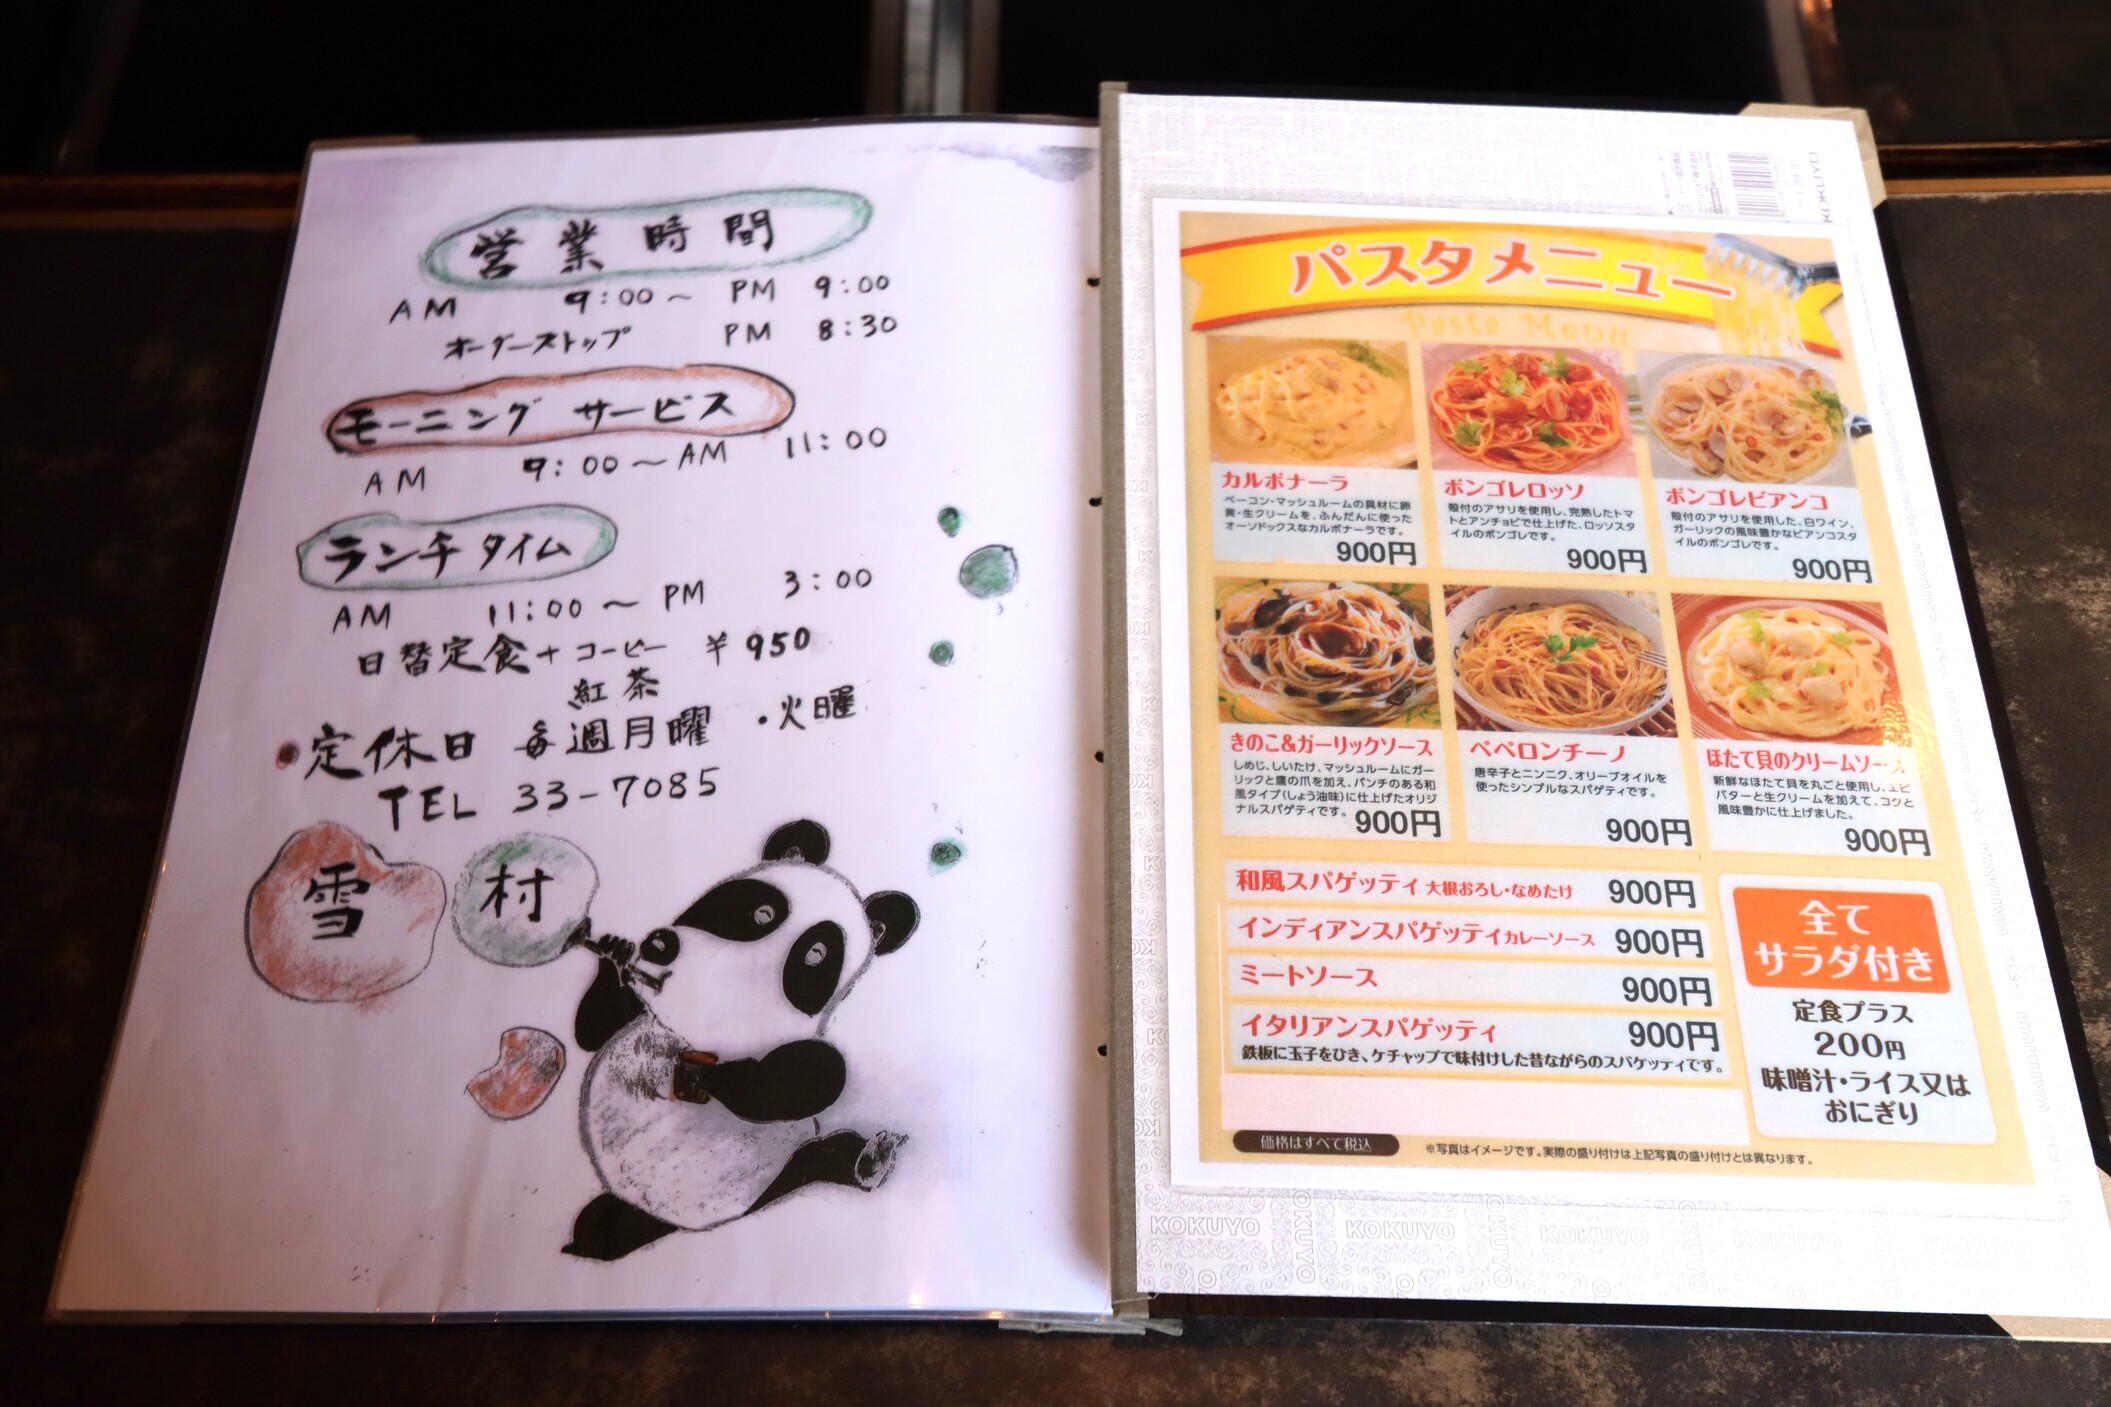 営業時間
AM 9:00～ PM 9:00
オーダーストップ PM 8:30
モーニング サービス
AM 9:00～AM 11:00
ランチタイム
AM 11:00～PM 3:00
日替定食+コーヒー ¥950
紅茶
定休日 毎週月曜・火曜
TEL 33-7085
雪村
KOKUYO
パスタメニュー
Pasta Menu
カルボナーラ
ベーコン・マッシュルームの具材に卵
黄・生クリームを、ふんだんに使った
オーソドックスなカルボナーラです。
900円
ボンゴレロッソ
殻付のアサリを使用し、完熟したトマ
トとアンチョビで仕上げた、ロッソスタ
イルのボンゴレです。
900円
ボンゴレビアンコ
殻付のアサリを使用した、白ワイン、
ガーリックの風味豊かなビアンコスタ
イルのボンゴレです。
900円
きのこ&ガーリックソース
しめじ、しいたけ、マッシュルームにガー
リックと鷹の爪を加え、パンチのある和
風タイプ(しょう油味)に仕上げたオリジ
ナルスパゲティです。
900円
ペペロンチーノ
唐辛子とニンニク、オリーブオイルを
使ったシンプルなスパゲティです。
900円
ほたて貝のクリームソース
新鮮なほたて貝を丸ごと使用し、エビ
バターと生クリームを加えて、コクと
風味豊かに仕上げました。
900円
和風スパゲッティ 大根おろし・なめたけ 900円
インディアンスパゲッティ カレーソース 900円
ミートソース 900円
イタリアンスパゲッティ 900円
鉄板に玉子をひき、ケチャップで味付けした昔ながらのスパゲッティです。
全て
サラダ付き
定食プラス
200円
味噌汁・ライス又は
おにぎり
価格はすべて税込
※写真はイメージです。実際の盛り付けは上記写真の盛り付けとは異なります。
KOKUYO KOKUYO KOKUYO